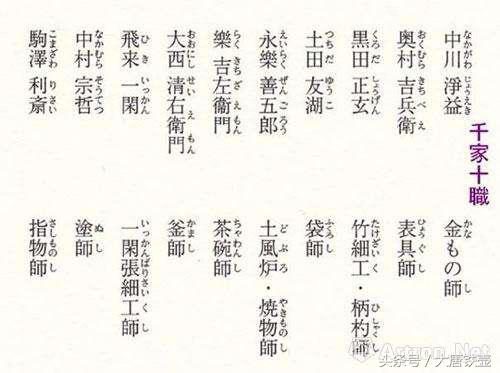 千家十職
中川 淨益 金もの師
なかがわ じょうえき かな し
奥村 吉兵衛 表具師
おくむら きちべえ ひょうぐし
黒田 正玄 竹細工・柄杓師
くろだ しょうげん たけざいく ひしゃくし
土田 友湖 袋師
つちだ ゆうこ ふくろし
永樂 善五郎 土風炉・焼物師
えいらく ぜんごろう どぶろ やきものし
樂 吉左衞門 茶碗師
らく きちざえもん ちゃわんし
大西 清右衛門 釜師
おおにし せいえもん かまし
飛来 一閑 一閑張細工師
ひき いっかん いっかんばりさいくし
中村 宗哲 塗師
なかむら そうてつ ぬし
駒澤 利斎 指物師
こまざわ りさい さしものし
Artron.Net
头条号 / 大唐铁壶